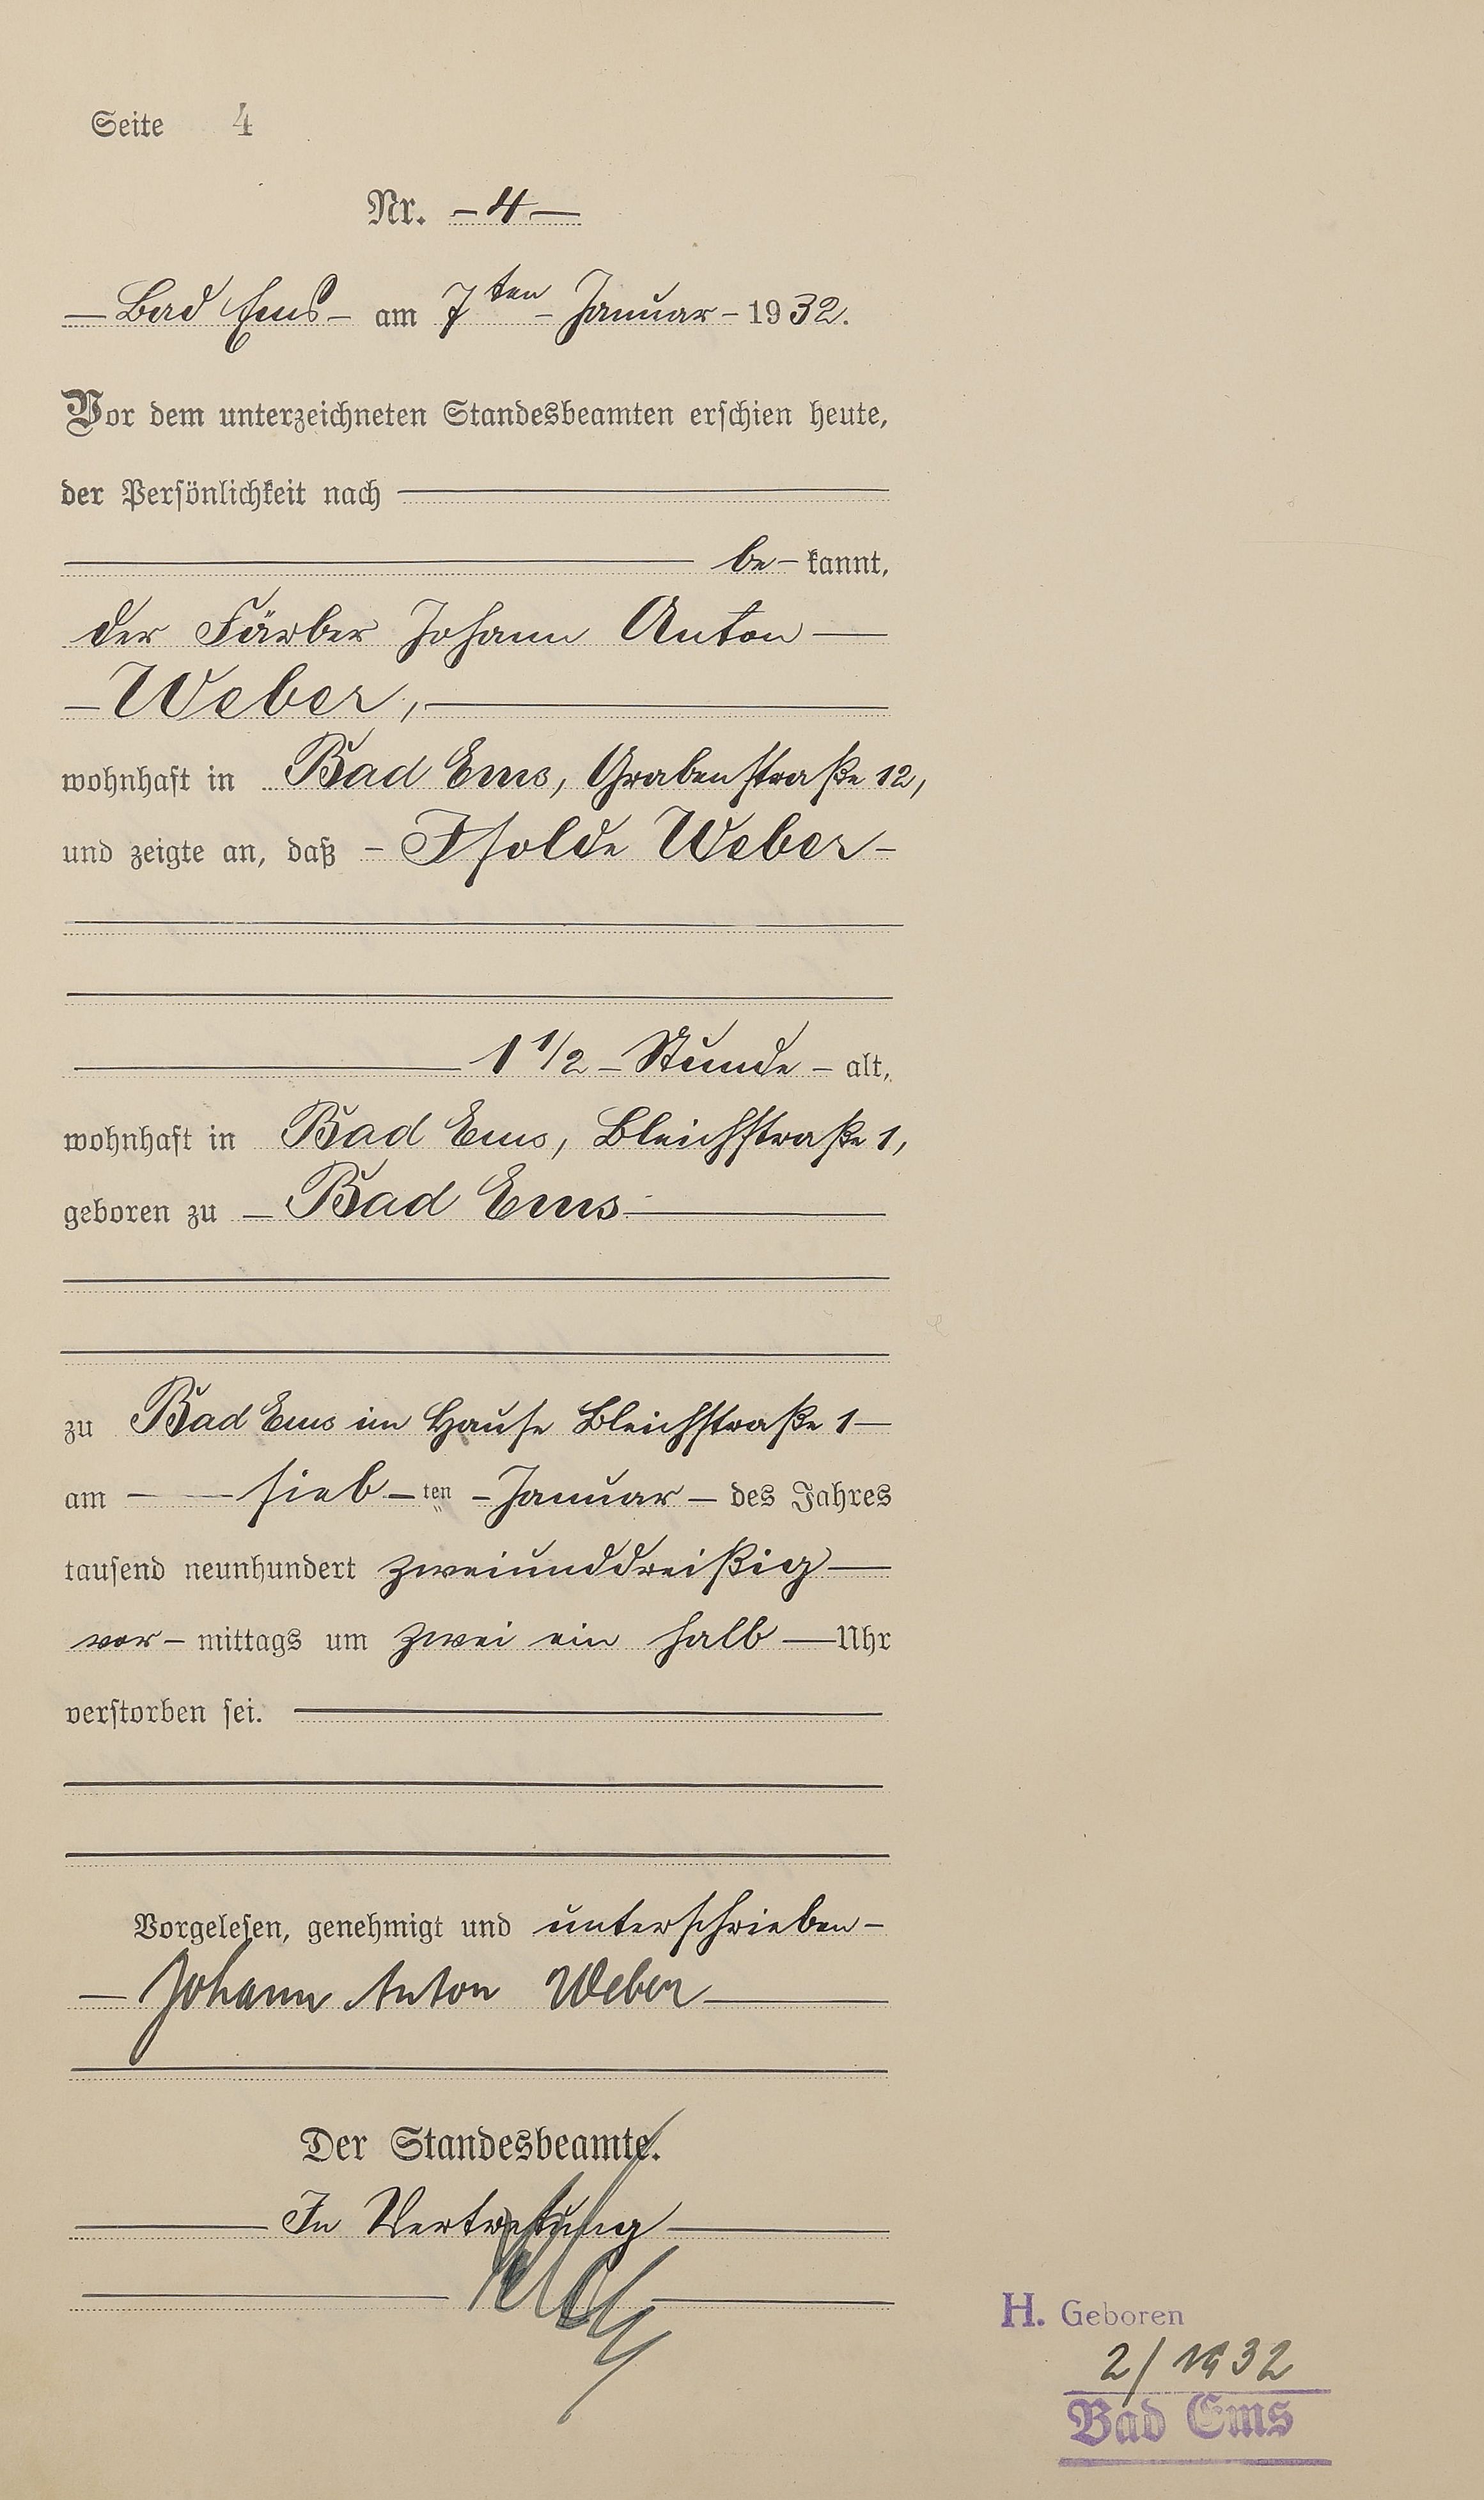 Seite 4
Nr. – 4 –
– Bad Ems – am 7ten – Januar – 1932.
Vor dem unterzeichneten Standesbeamten erschien heute,
der Persönlichkeit nach
be – kannt,
der Färber Johann Anton –
– Weber, –
wohnhaft in Bad Ems, Grabenstraße 12,
und zeigte an, daß – Isolde Weber –
1 1/2 – Stunde – alt,
wohnhaft in Bad Ems, Bleichstraße 1,
geboren zu – Bad Ems –
zu Bad Ems im Hause Bleichstraße 1 –
am – sieb – ten – Januar – des Jahres
tausend neunhundert zweiunddreißig –
vor – mittags um zwei ein halb – Uhr
verstorben sei.
Vorgelesen, genehmigt und unterschrieben –
– Johann Anton Weber –
Der Standesbeamte.
In Vertretung
H. Geboren
2/1932
Bad Ems